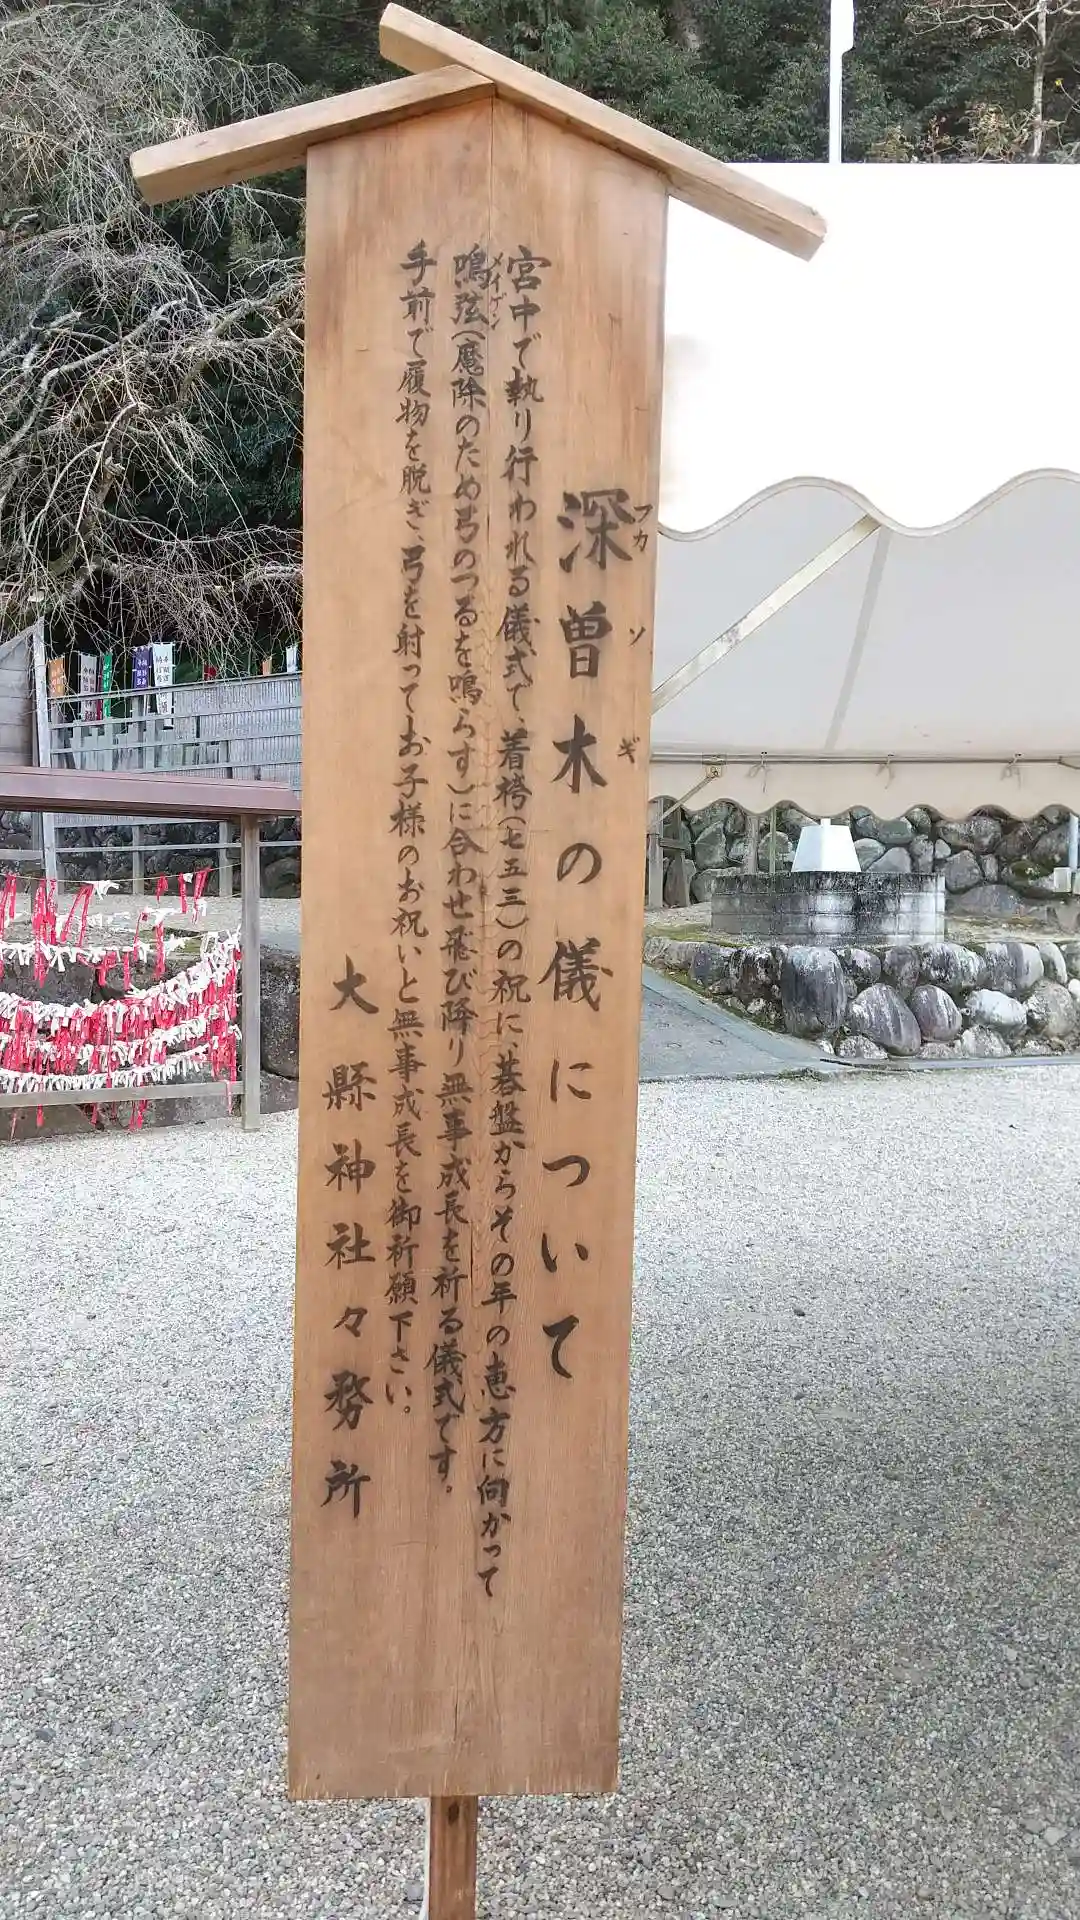 深曽木の儀について
フカソギ
宮中で執り行われる儀式で、着袴(七五三)の祝に、碁盤からその年の恵方に向かって
メイゲン
鳴弦(魔除のため弓のつるを鳴らす)に合わせ飛び降り無事成長を祈る儀式です。
手前で履物を脱ぎ、弓を射ってお子様のお祝いと無事成長を御祈願下さい。
大縣神社々務所